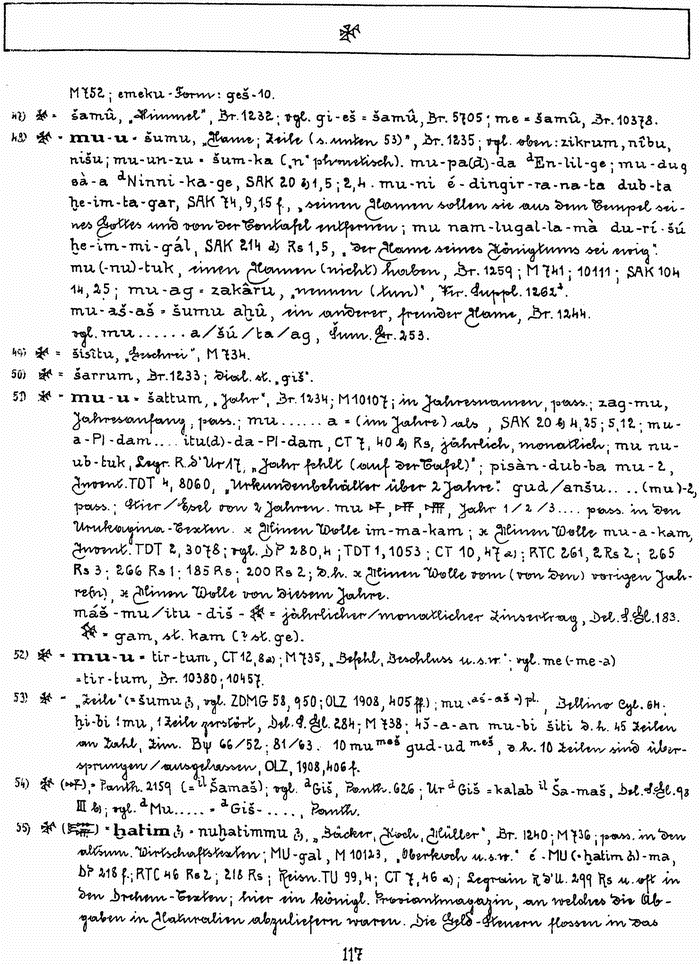 M 752; emeku-Form: geš-10.
47) = šamû, „Himmel", Br. 1232; vgl. gi-eš = šamû, Br. 5705; me = šamû, Br. 10378.
48) = mu-u = šumu, „Name; Zeile (s. unten 53)", Br. 1235; vgl. oben: zikrum, nîbu,
nišu; mu-un-zu = šum-ka („n" phonetisch). mu-pa(d)-da ᵈEn-lil-ge; mu-dug
sà-a ᵈNinni-ka-ge, SAK 20 b) 1,5; 2,4. mu-ni é-dingir-ra-na-ta dub-ta
ḫe-im-ta-gar, SAK 74, 9, 15 f., „seinen Namen sollen sie aus dem Tempel sei-
nes Gottes und von der Tontafel entfernen; mu nam-lugal-la-mà du-rí-šú
ḫe-im-mi-gál, SAK 214 d) Rs 1,5, „der Name seines Königtums sei ewig".
mu (-nu)-tuk, einen Namen (nicht) haben, Br. 1259; M 741; 10111; SAK 104
14, 25; mu-ag = zakâru, „nennen (tun)", Suppl. 1262ᵃ.
mu-aš-aš = šumu aḫû, ein anderer, fremder Name, Br. 1244.
vgl. mu ...... a/šú/ta/ag, Šum. Gr. 253.
49) = šisîtu, „Geschrei", M 734.
50) = šarrum, Br. 1233; dial. st. „giš".
51) = mu-u = šattum, „Jahr", Br. 1234; M 10107; in Jahresnamen, pass.; zag-mu,
Jahresanfang, pass.; mu ...... a = (im Jahre) als, SAK 20 b) 4,25; 5,12; mu-
a-PI-dam .... itu(d)-da-PI-dam, CT 7, 40 b) Rs, jährlich, monatlich; mu nu-
ub-tuk, Legr. R.d'Ur 17, „Jahr fehlt (auf der Tafel)"; pisàn-dub-ba mu-2,
Invent. TDT 4, 8060, „Urkundenbehälter über 2 Jahre". gud/anšu.. ..(mu)-2,
pass.; Stier/Esel von 2 Jahren. mu, Jahr 1/2/3.... pass. in den
Urukagina-Texten. x Minen Wolle im-ma-kam; x Minen Wolle mu-a-kam,
Invent. TDT 2, 3078; vgl. DP 280,4; TDT 1, 1053; CT 10, 47 a); RTC 261, 2 Rs 2; 265
Rs 3; 266 Rs 1; 185 Rs; 200 Rs 2; d.h. x Minen Wolle vom (von den) vorigen Jah-
re(n), x Minen Wolle von diesem Jahre.
máš-mu/itu-diš- = jährlicher/monatlicher Zinsertrag, Del. S.Gl. 183.
= gam, st. kam (? st. ge).
52) = mu-u = tir-tum, CT 12, 8 a); M 735, „Befehl, Beschluss u.s.w."; vgl. me (-me-a)
= tir-tum, Br. 10380; 10457.
53) = „Zeile" (= šumu), vgl. ZDMG 58, 950; OLZ 1908, 405 ff.); mu (aš-aš =) pl., Bellino Cyl. 64;
ḫi-bi 1 mu, 1 Zeile zerstört, Del. S.Gl. 284; M 738; 45-a-an mu-bi šiti d.h. 45 Zeilen
an Zahl, Zim. Bψ 66/52; 81/63. 10 mu ᵐᵉˢ̌ gud-ud ᵐᵉˢ̌, d.h. 10 Zeilen sind über-
sprungen/ausgelassen, OLZ, 1908, 406 f.
54) = Panth. 2159 (= ⁱˡ Šamaš); vgl. ᵈGiš, Panth. 626; Ur ᵈGiš = kalab ⁱˡ Ša-maš, Del. S.Gl. 98
III b); vgl. ᵈMu ..... = ᵈGiš- ...., Panth.
55) = ḫatim = nuḫatimmu, „Bäcker, Koch, Müller", Br. 1240; M 736; pass. in den
altsum. Wirtschaftstexten; MU-gal, M 10123, „Oberkoch u.s.w." é-MU (= ḫatim)-ma,
DP 218 f.; RTC 46 Rs 2; 218 Rs; Reisn. TU 99,4; CT 7, 46 a); Legrain R d'U. 299 Rs u. oft in
den Drehem-Texten; hier ein königl. Proviantmagazin, an welches die Ab-
gaben in Naturalien abzuliefern waren. Die Geld-Steuern flossen in das
117